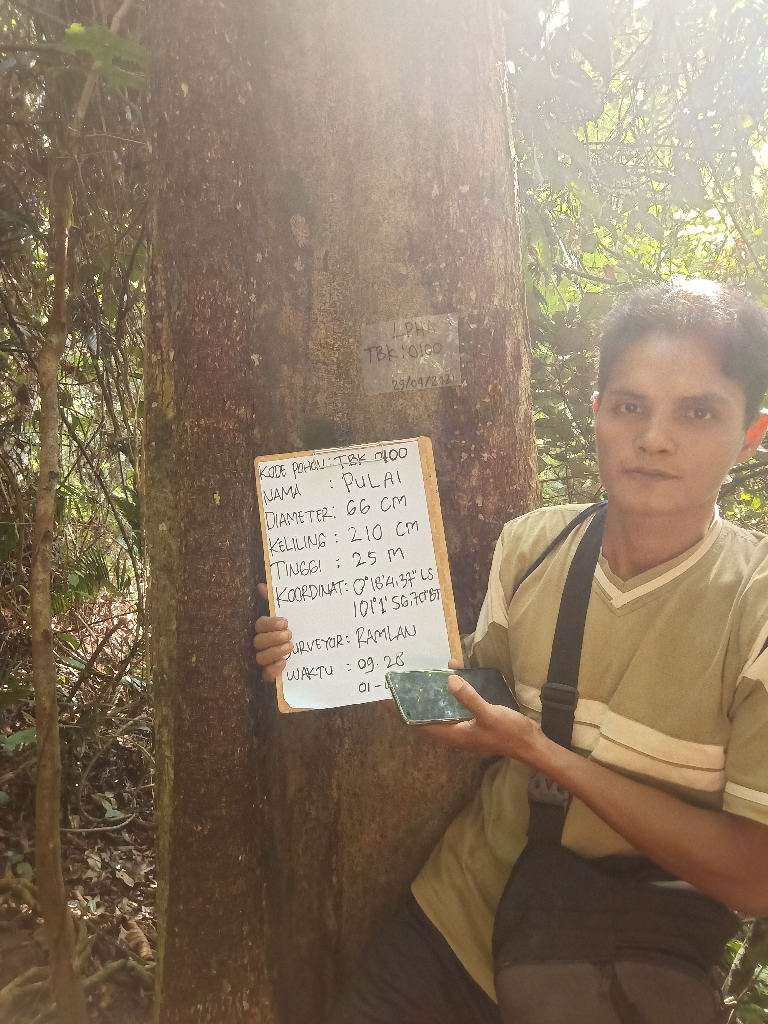 LPHA
TBK:0100
29/04/2021
KODE POHON: TBK 0100
NAMA : PULAI
DIAMETER: 66 CM
KELILING : 210 CM
TINGGI : 25 M
KOORDINAT: 0°18'4.37" LS
101°1'56.70"BT
SURVEYOR: RAMLAN
WAKTU : 09.28
01-